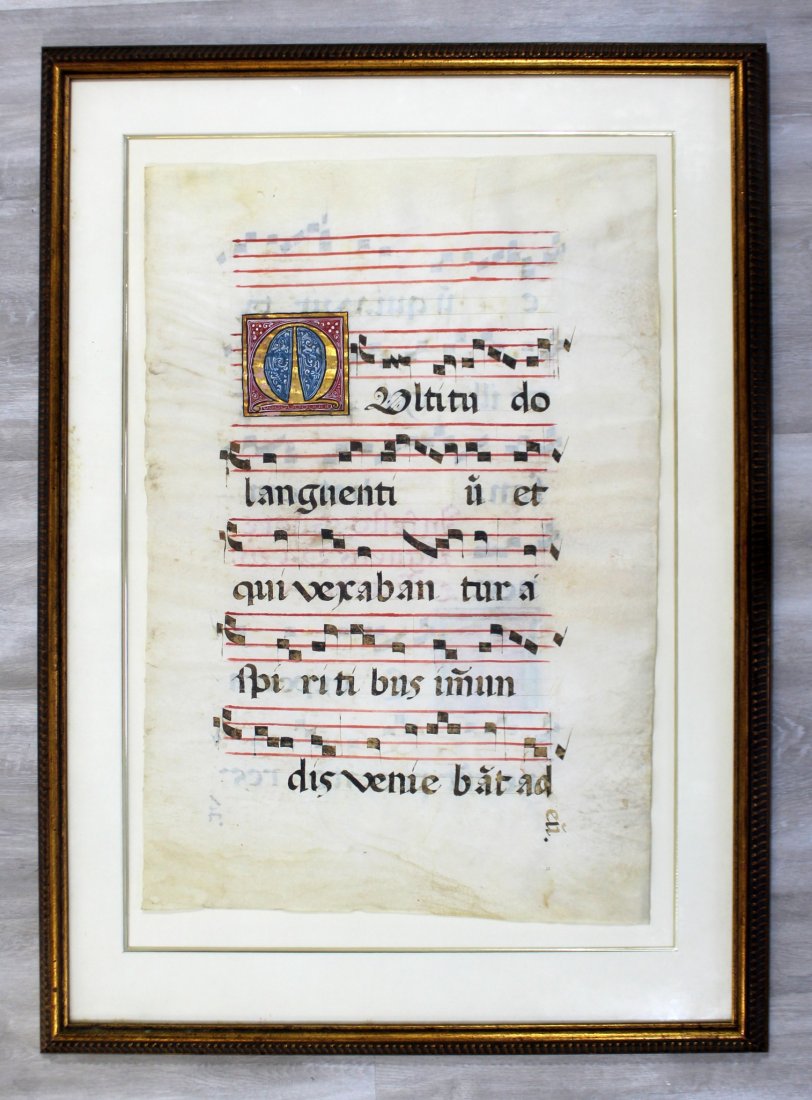 MVltitu do
languenti ũ et
qui vexaban tur a
spi ri ti bus im̃un
dis venie bãt ad
eũ.